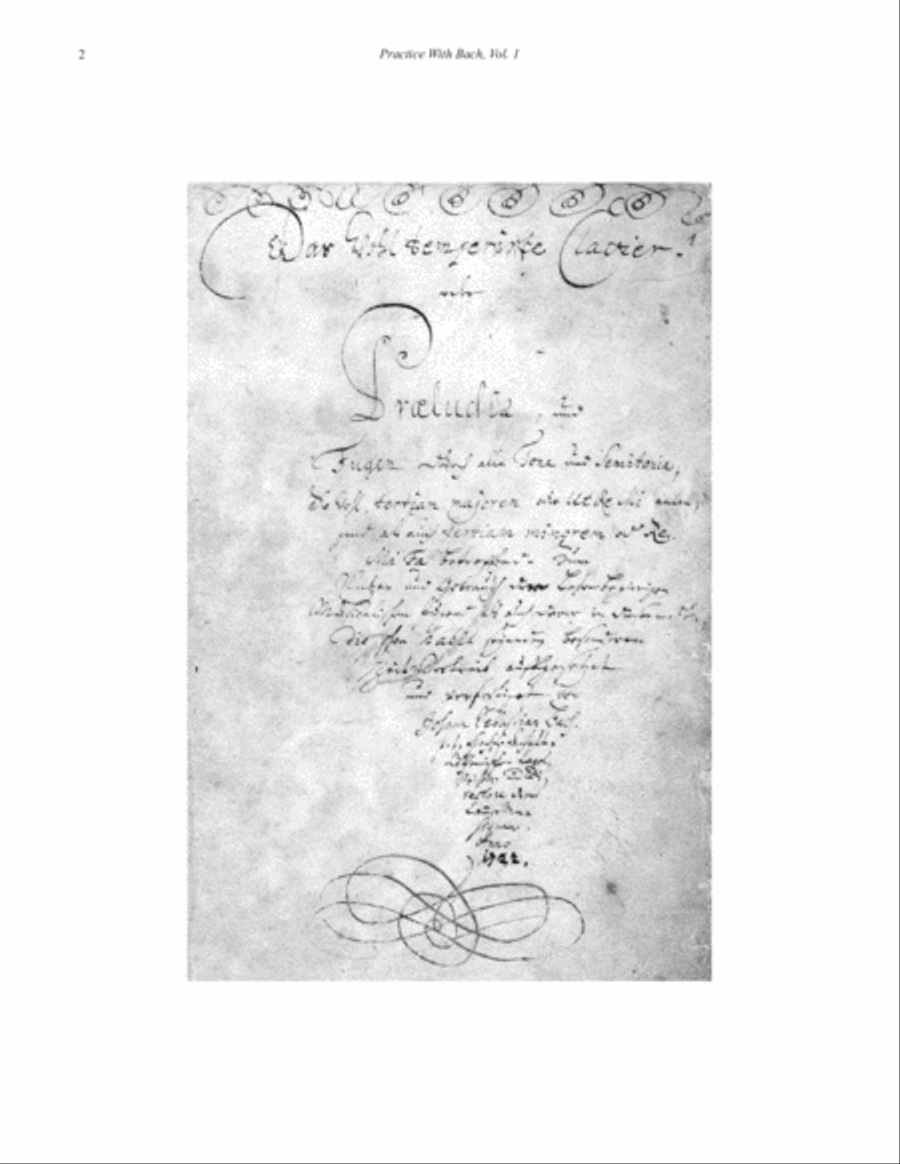 2
Practice With Bach, Vol. 1
Das Wohl temperirte Clavier.
oder
Præludia, und
Fugen durch alle Tone und Semitonia,
So wohl tertiam majorem oder Ut Re Mi
als auch tertiam minorem oder Re
Mi Fa betreffend. Zum
Nutzen und Gebrauch der Lehrbegierigen
Musicalischen Jugend als auch derer in diesem
schon habil seyenden besonderem
Zeit Vertreib auffgesetzet
und verfertiget von
Johann Sebastian Bach.
rectore derer
Anno
1722.